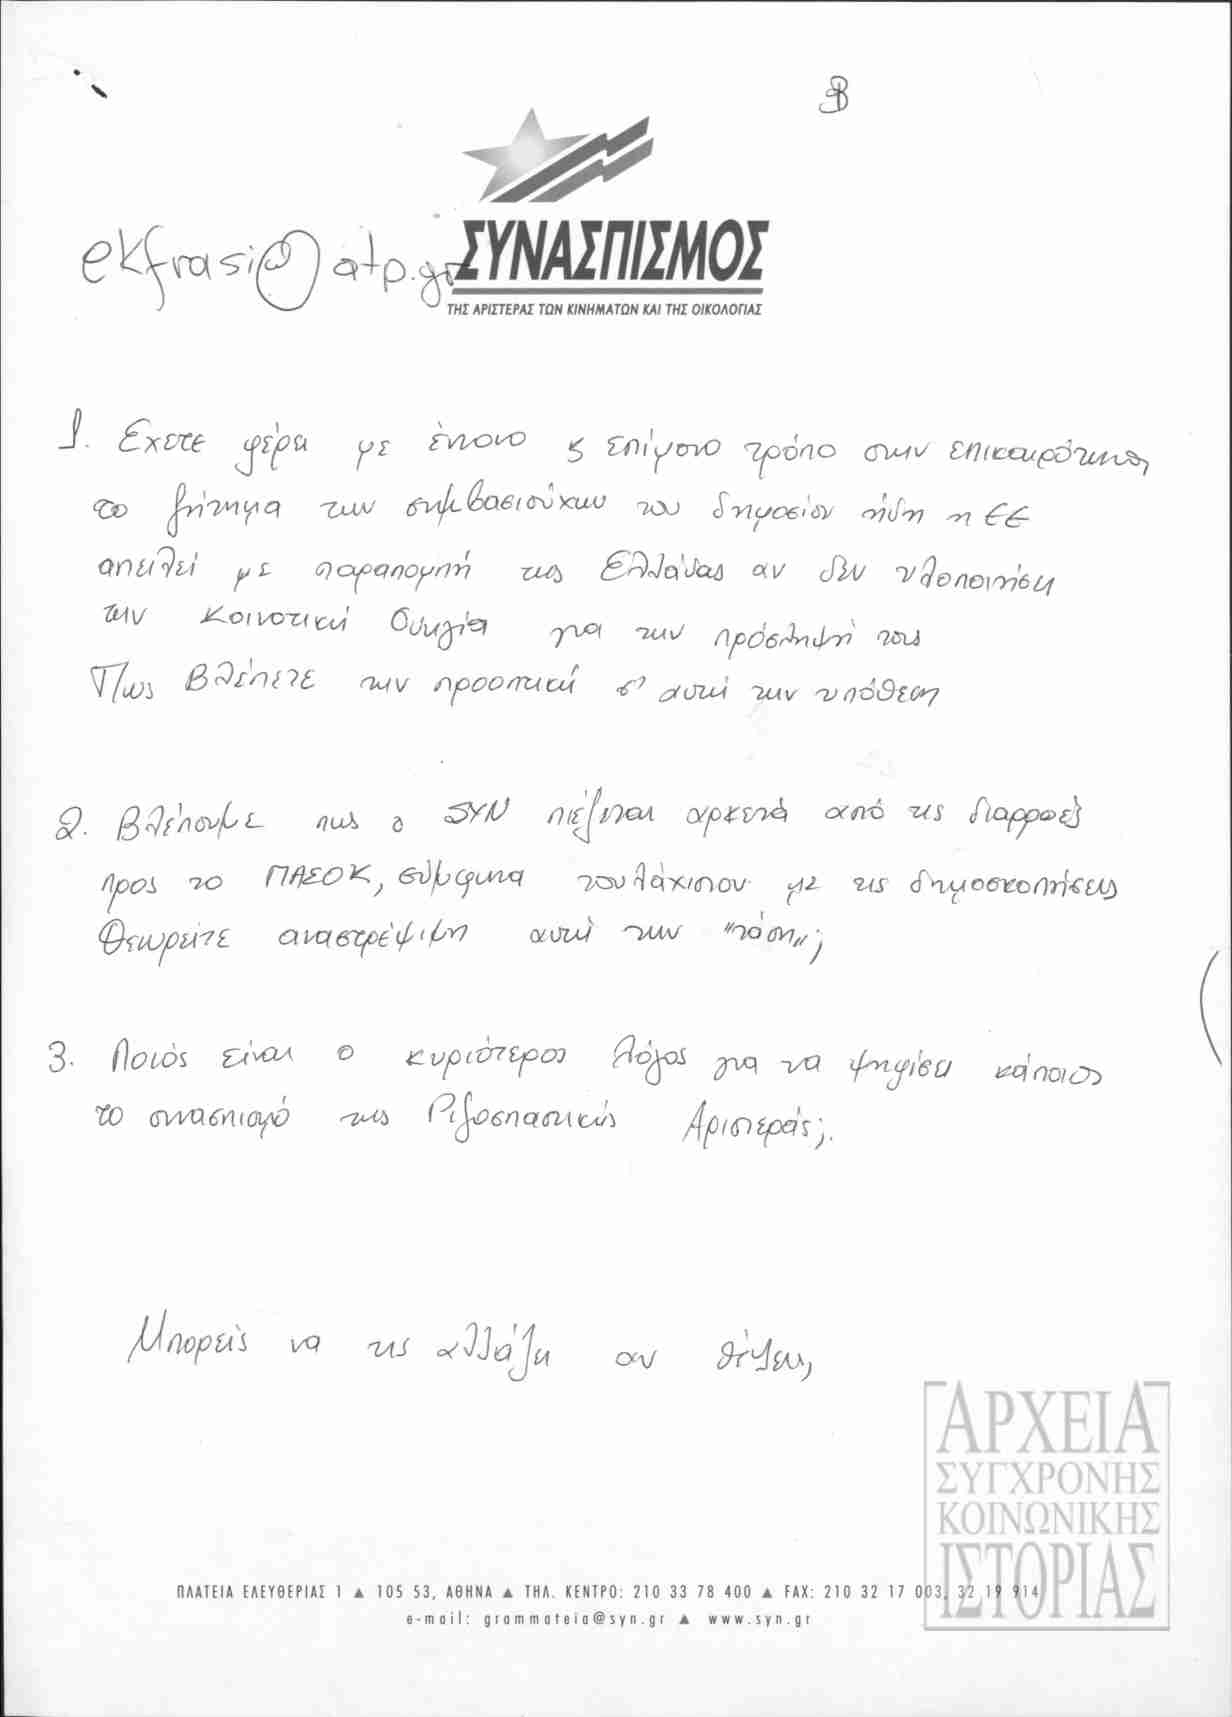 ΣΥΝΑΣΠΙΣΜΟΣ
ekfrasi@atp.gr
ΤΗΣ ΑΡΙΣΤΕΡΑΣ ΤΩΝ ΚΙΝΗΜΑΤΩΝ ΚΑΙ ΤΗΣ ΟΙΚΟΛΟΓΙΑΣ
1. Εχετε φέρει με έντονο ϗ επίμονο τρόπο στην επικαιρότητα
το ζήτημα των συμβασιούχων του δημοσίου ήδη η ΕΕ
απειλεί με παραπομπή της Ελλάδας αν δεν υλοποιήσει
την Κοινοτική Οδηγία για την πρόσληψή τους
Πως βλέπετε την προοπτική σ' αυτή την υπόθεση
2. Βλέπουμε πως ο ΣΥΝ πιέζεται αρκετά από τις διαρροές
προς το ΠΑΣΟΚ, σύμφωνα τουλάχιστον με τις δημοσκοπήσεις
Θεωρείτε αναστρέψιμη αυτή την "τάση";
3. Ποιός είναι ο κυριότερος λόγος για να ψηφίσει κάποιος
το συνασπισμό της Ριζοσπαστικής Αριστεράς;.
Μπορείς να τις αλλάξεις αν θέλεις,
ΑΡΧΕΙΑ
ΣΥΓΧΡΟΝΗΣ
ΚΟΙΝΩΝΙΚΗΣ
ΙΣΤΟΡΙΑΣ
ΠΛΑΤΕΙΑ ΕΛΕΥΘΕΡΙΑΣ 1 ▲ 105 53, ΑΘΗΝΑ ▲ ΤΗΛ. ΚΕΝΤΡΟ: 210 33 78 400 ▲ FAX: 210 32 17 003, 32 19 914
e-mail: grammateia@syn.gr ▲ www.syn.gr